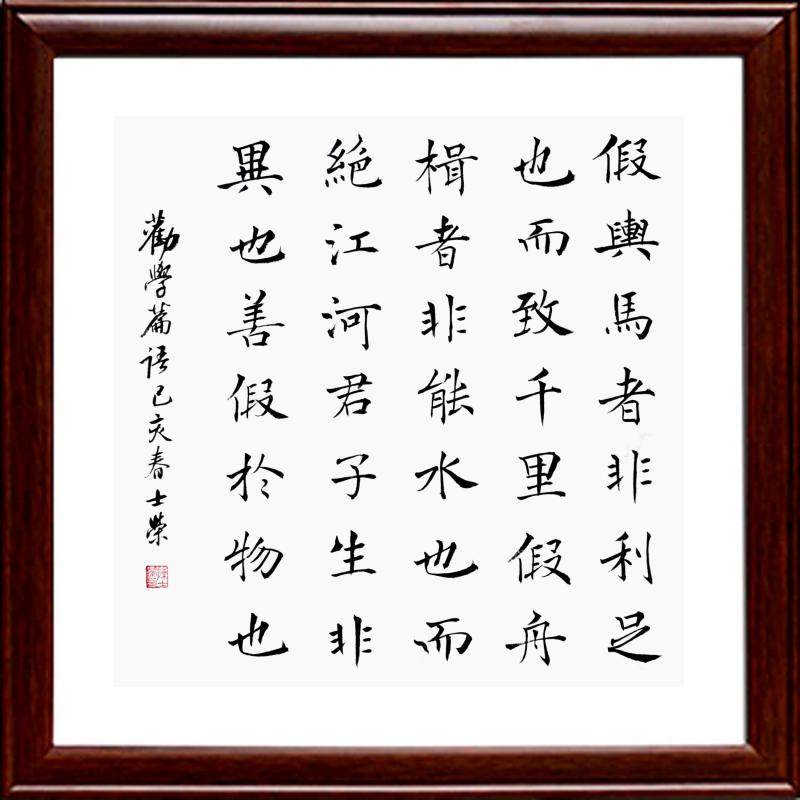 假輿馬者非利足
也而致千里假舟
楫者非能水也而
絕江河君子生非
異也善假於物也
勸學篇语己亥春士榮